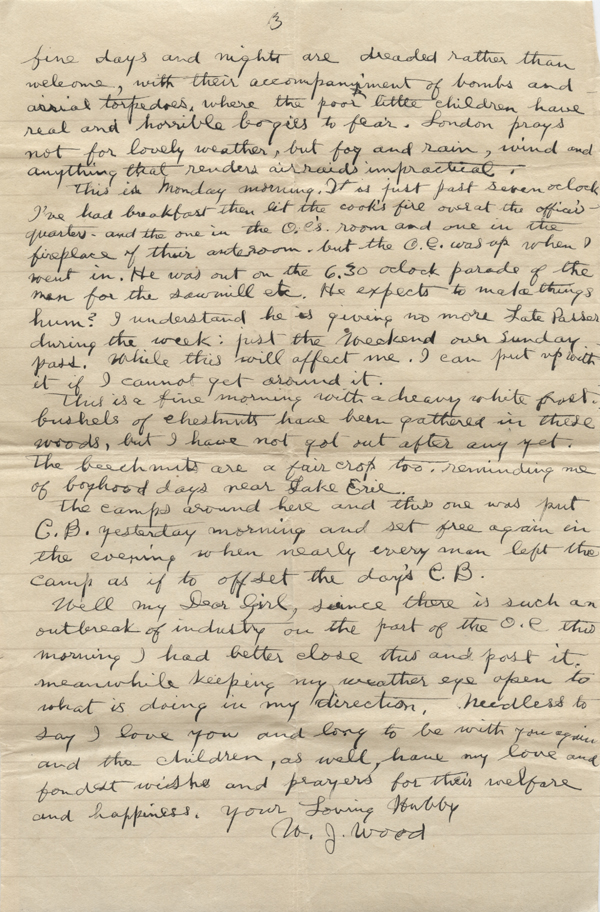 3
fine days and nights are dreaded rather than
welcome, with their accompanyiment of bombs and
aerial torpedoes, where the poor little children have
real and horrible bogies to fear. London prays
not for lovely weather, but fog and rain, wind and
anything that renders airraids impractical.
This is Monday morning. It is just past seven oclock
I've had breakfast then lit the cook's fire over at the officer's
quarters and the one in the O.C's. room and one in the
fireplace of their anteroom. but the O.C. was up when I
went in. He was out on the 6.30 oclock parade of the
men for the sawmill etc. He expects to make things
hum? I understand he is giving no more Late Passes
during the week: just the Weekend over Sunday
pass. While this will affect me. I can put up with
it if I cannot get around it.
This is a fine morning with a heavy white frost.
bushels of chestnuts have been gathered in these
woods, but I have not got out after any yet.
The beechnuts are a fair crop too. reminding me
of boyhood days near Lake Erie.
The camps around here and this one was put
C.B. yesterday morning and set free again in
the evening when nearly every man left the
camp as if to offset the day's C.B.
Well my Dear Girl, since there is such an
outbreak of industry on the part of the O.C this
morning I had better close this and post it.
meanwhile keeping my weather eye open to
what is doing in my direction. Needless to
say I love you and long to be with you again
and the children, as well, have my love and
fondest wishes and prayers for their welfare
and happiness. Your Loving Hubby
W. J. Wood